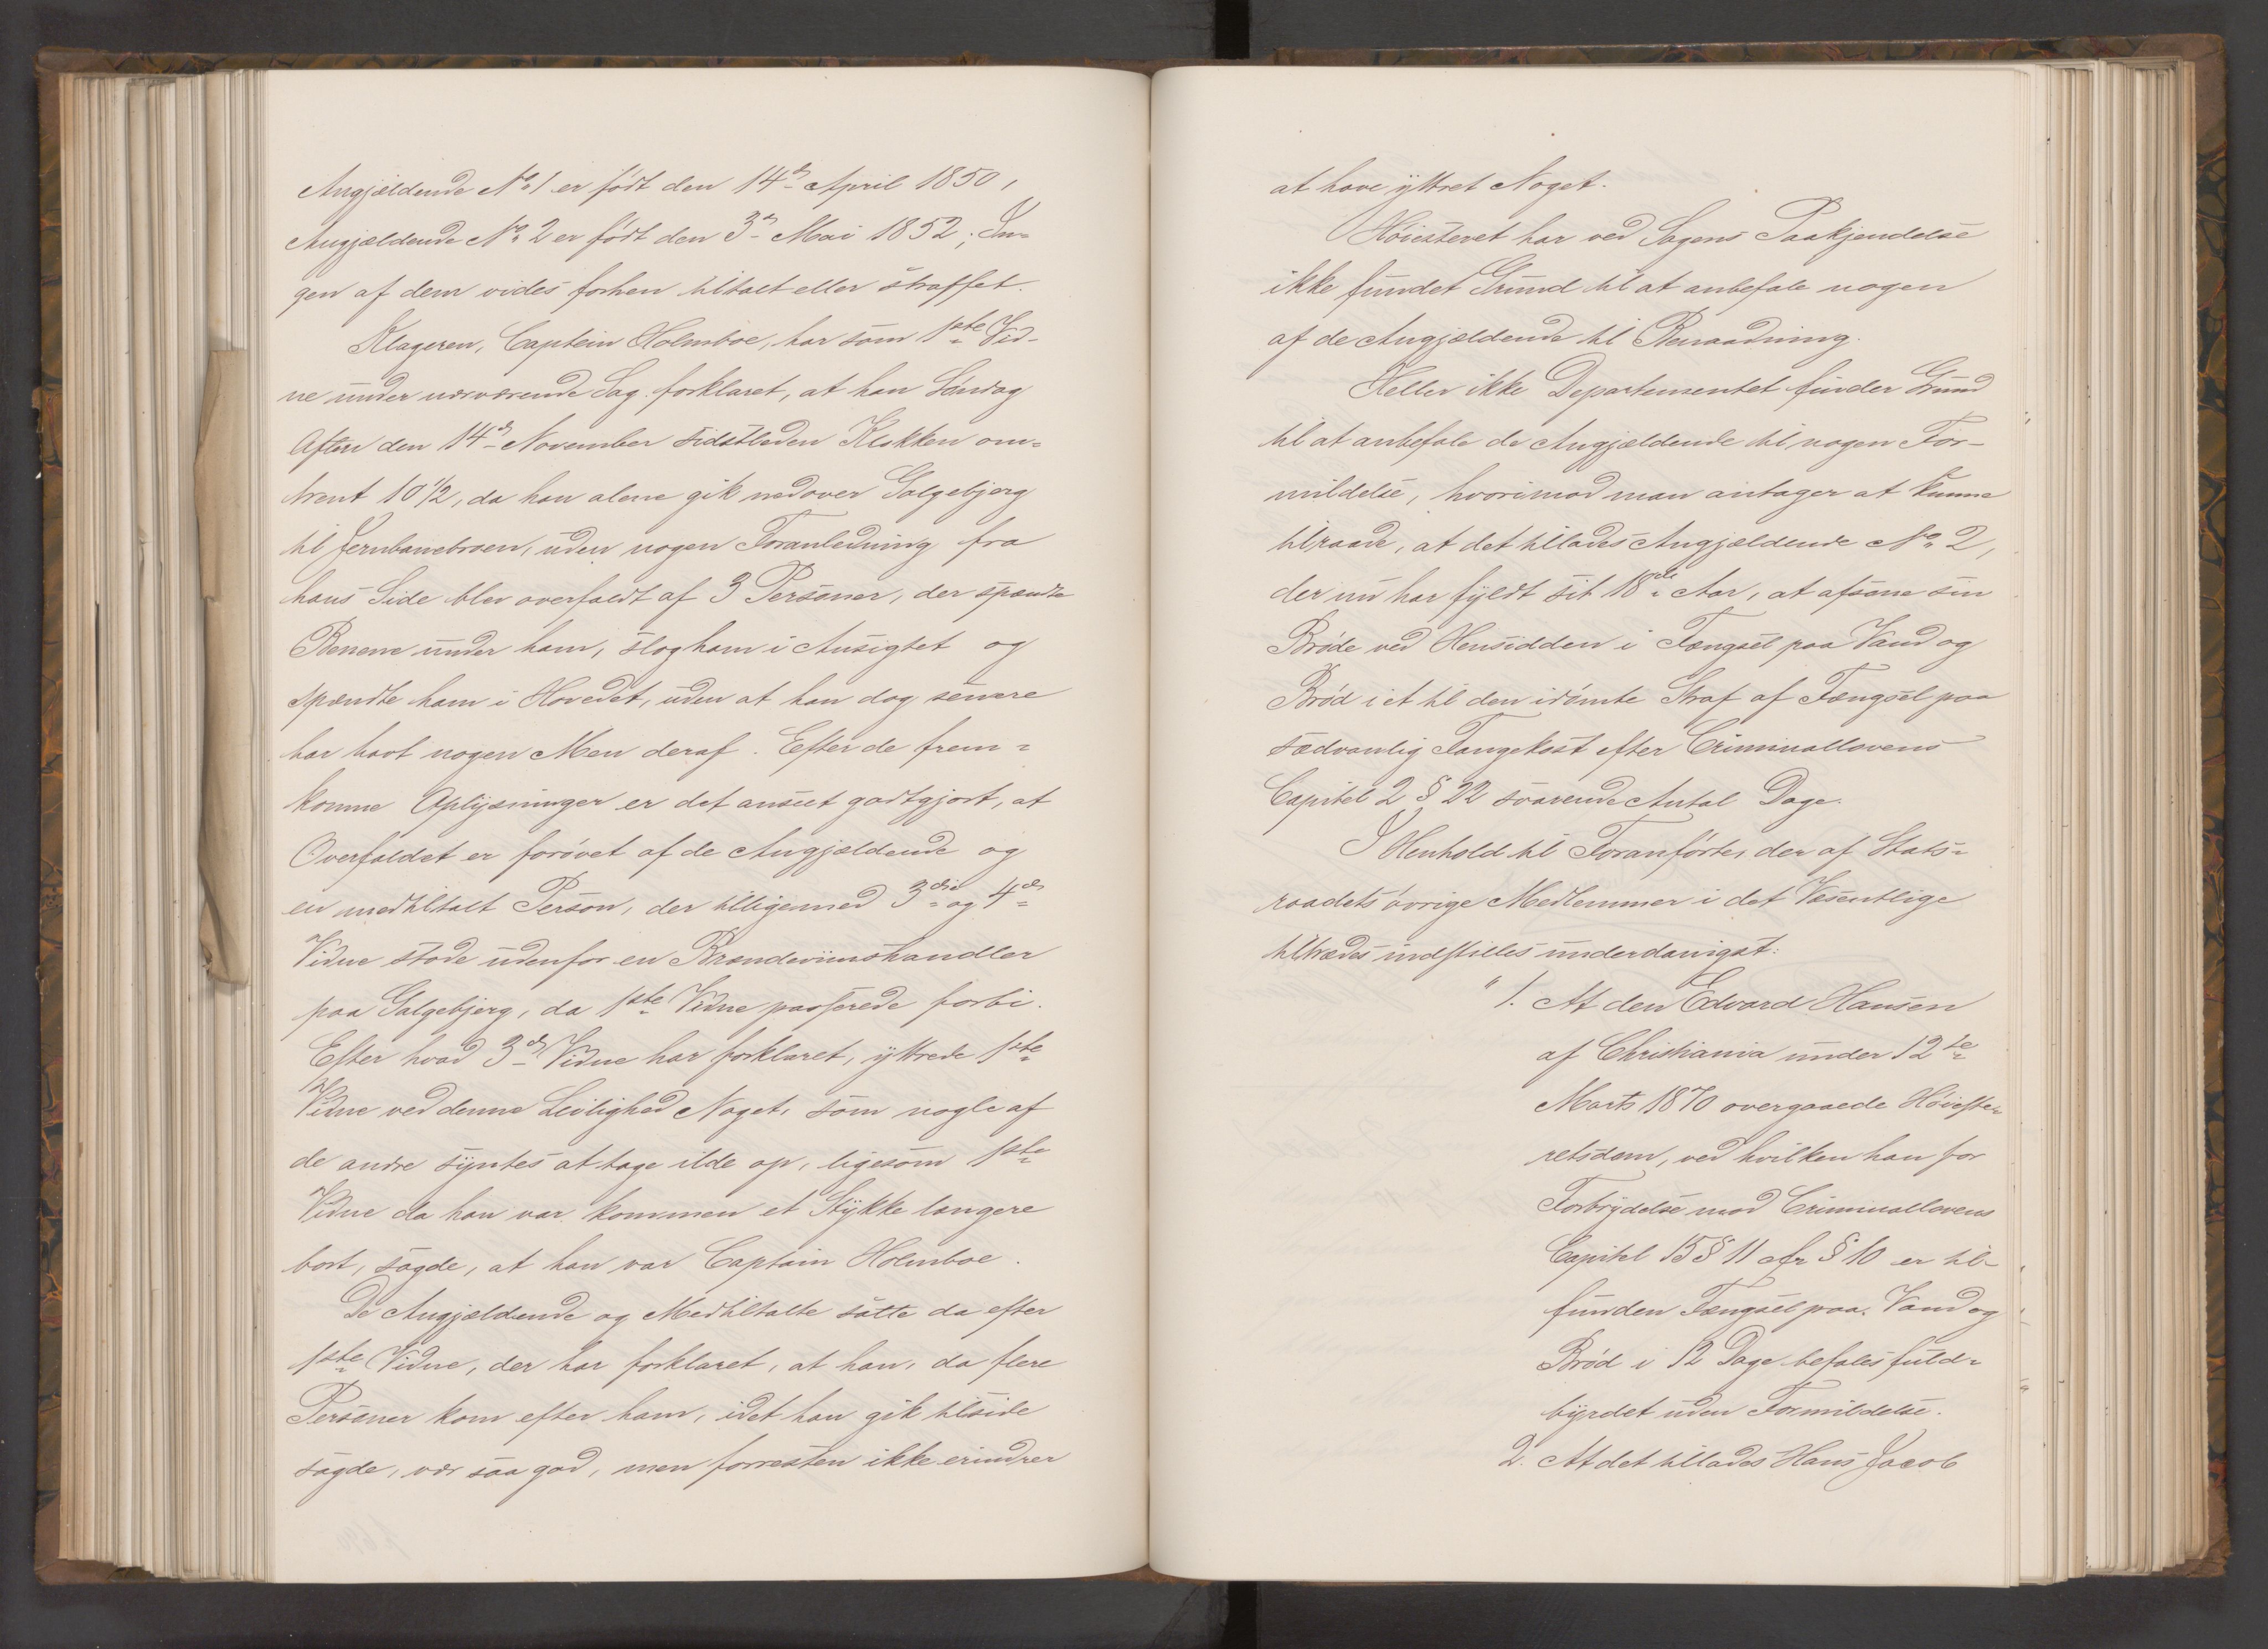 Angjældende No 1 er født den 14de April 1850,
Angjældende No 2 er født den 3de Mai 1852; In-
gen af dem vides forhen tiltalt eller straffet.
Klageren, Captein Holmboe, har som 1ste Vid-
ne under nærværende Sag forklaret, at han Søndag
Aften den 14de November sidstleden Klokken om-
trent 10 1/2, da han alene gik nedover Galgebjerg
til Jernbanebroen, uden nogen Foranledning fra
hans Side blev overfaldt af 3 Personer, der spændte
Benene under ham, slog ham i Ansigtet og
spændte ham i Hovedet, uden at han dog senere
har havt nogen Men deraf. Efter de frem-
komne Oplysninger er det anseet godtgjort, at
Overfaldet er forøvet af de Angjældende og
en medtiltalt Person, der tilligemed 3die og 4de
Vidne stode udenfor en Brændeviinshandler
paa Galgebjerg, da 1ste Vidne passerede forbi.
Efter hvad 3de Vidne har forklaret, yttrede 1ste
Vidne ved denne Leilighed Noget, som nogle af
de andre syntes at tage ilde op, ligesom 1ste
Vidne da han var kommen et Stykke længere
bort, sagde, at han var Captain Holmboe.
De Angjældende og Medtiltalte satte da efter
1ste Vidne, der har forklaret, at han, da flere
Personer kom efter ham, idet han gik tilside
sagde, vær saa god, men forresten ikke erindrer
at have yttret Noget.
Høiesteret har ved Sagens Paakjendelse
ikke fundet Grund til at anbefale nogen
af de Angjældende til Benaadning.
Heller ikke Departementet finder Grund
til at anbefale de Angjældende til nogen For-
mildelse, hvorimod man antager at kunne
tilraade, at det tillades Angjældende No 2,
der nu har fyldt sit 18de Aar, at afsone sin
Brøde ved Hensidden i Fængsel paa Vand og
Brød i et til den idømte Straf af Fængsel paa
sædvanlig Fangekost efter Criminallovens
Capitel 2 § 22 svarende Antal Dage.
I Henhold til Foranførte, der af Stats-
raadets øvrige Medlemmer i det Væsentlige
tiltrædes indstilles underdanigst:
"1. At den Edvard Hansen
af Christiania under 12te
Marts 1870 overgaaede Høieste-
retsdom, ved hvilken han for
Forbrydelse mod Criminallovens
Capitel 15 § 11 cfr § 10 er til-
funden Fængsel paa Vand og
Brød i 12 Dage befales fuld-
byrdet uden Formildelse.
2. At det tillades Hans Jacob